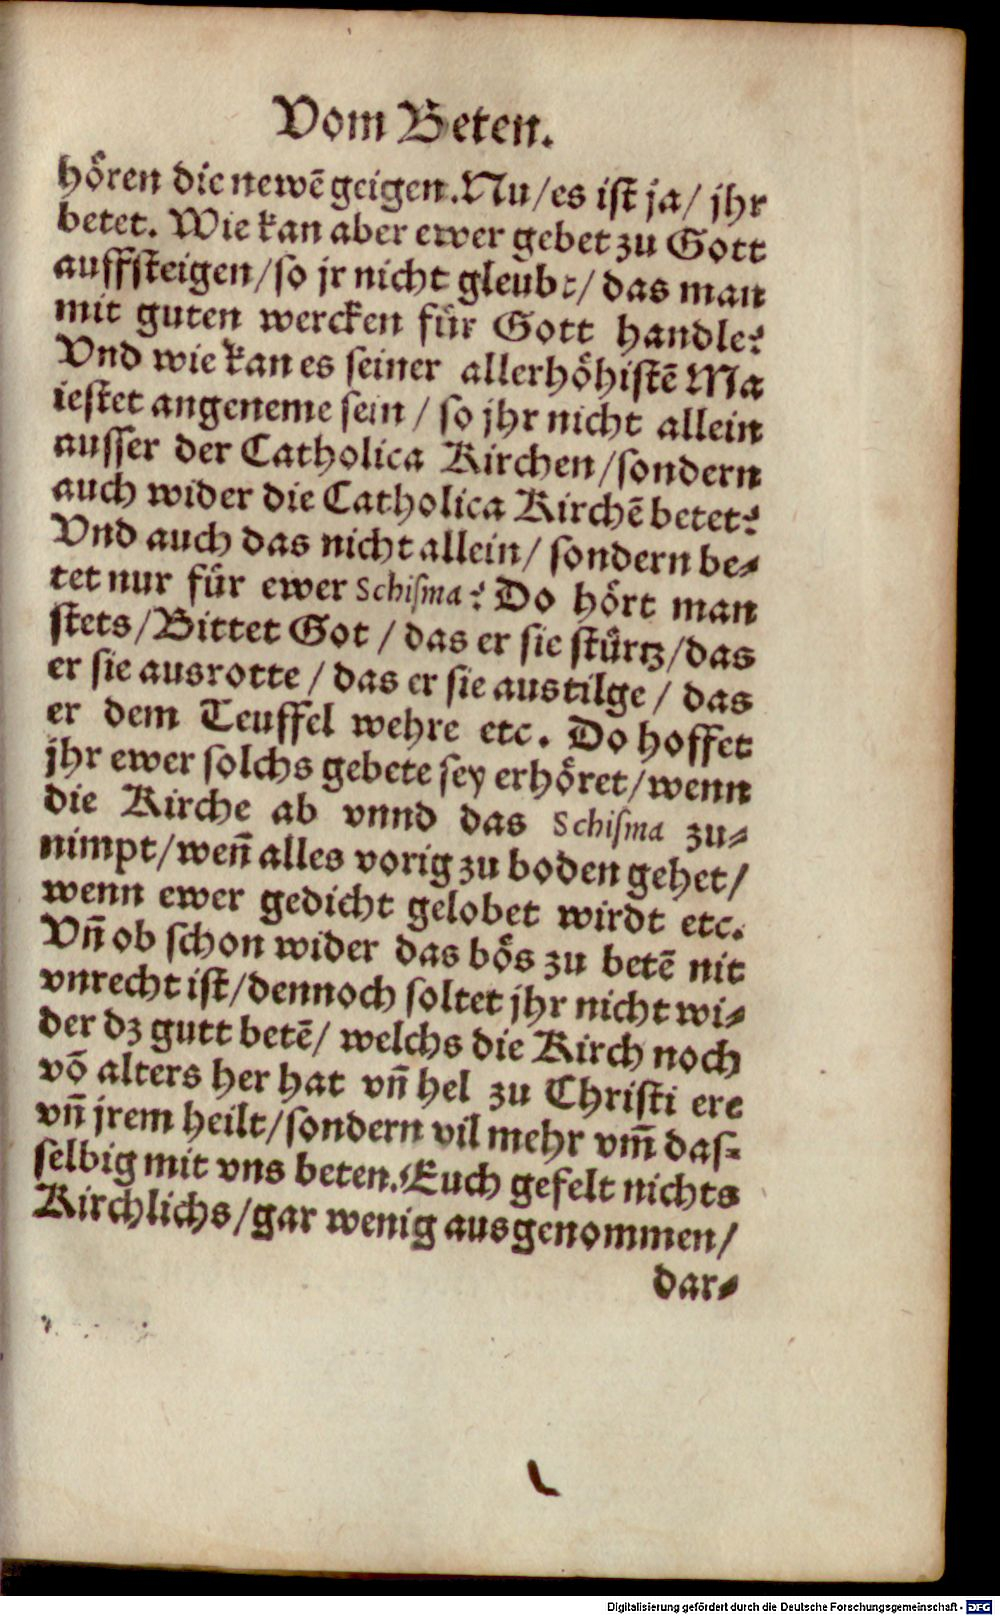 Vom Beten.
hören die newē geigen. Nu / es ist ja / jhr
betet. Wie kan aber ewer gebet zu Gott
auffsteigen / so jr nicht gleubt / das man
mit guten wercken für Gott handle?
Vnd wie kan es seiner allerhöhistē Ma
iestet angeneme sein / so jhr nicht allein
ausser der Catholica Kirchen / sondern
auch wider die Catholica Kirchē betet?
Vnd auch das nicht allein / sondern be-
tet nur für ewer Schisma? Do hört man
stets / Bittet Got / das er sie stürtz / das
er sie ausrotte / das er sie austilge / das
er dem Teuffel wehre etc. Do hoffet
jhr ewer solchs gebete sey erhöret / wenn
die Kirche ab vnnd das Schisma zu-
nimpt / weñ alles vorig zu boden gehet /
wenn ewer gedicht gelobet wirdt etc.
Vñ ob schon wider das bös zu betē nit
vnrecht ist / dennoch soltet jhr nicht wi-
der dz gutt betē / welchs die Kirch noch
vō alters her hat vñ hel zu Christi ere
vñ jrem heilt / sondern vil mehr vm̃ das-
selbig mit vns beten. Euch gefelt nichts
Kirchlichs / gar wenig ausgenommen /
dar-
Digitalisierung gefördert durch die Deutsche Forschungsgemeinschaft - DFG